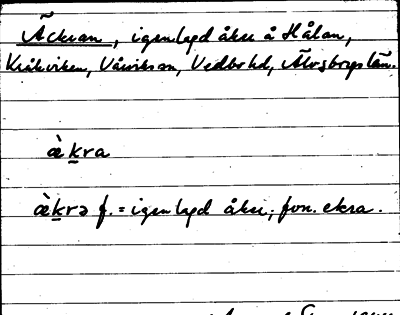 Äckran, igenlagd åker å Hålan,
Kråkviken, Vårviks sn, Vedbo hd, Älvsborgs län.
æ̀ḵra
æ̀ḵrə f. = igenlagd åker; fvn. ekra.